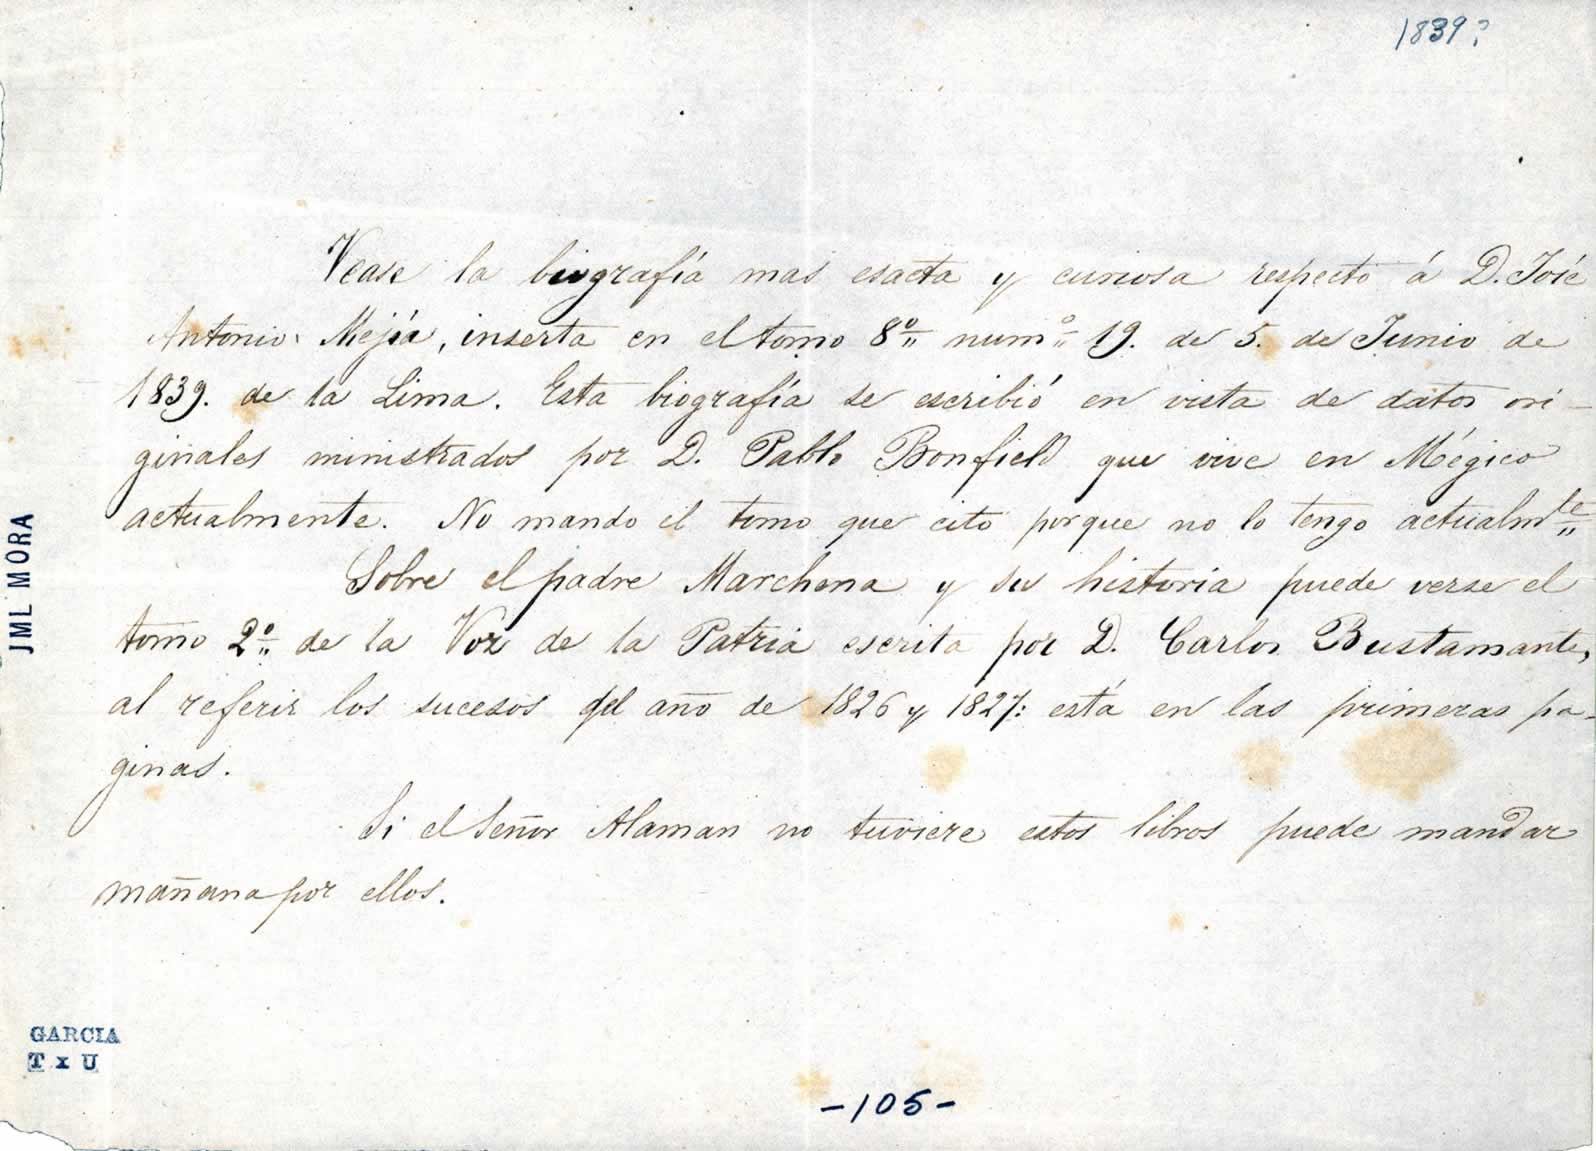 1839?
Vease la biografía mas esacta y curiosa respecto á D. José
Antonio Mejía, inserta en el tomo 8º num.º 19. de 5. de Junio de
1839. de la Lima. Esta biografía se escribió en vista de datos ori-
ginales ministrados por D. Pablo Bonfield que vive en Mégico
actualmente. No mando el tomo que cito porque no lo tengo actualmte
Sobre el padre Marchena y su historia puede verse el
tomo 2º de la Voz de la Patria escrita por D. Carlos Bustamante,
al referir los sucesos del año de 1826 y 1827: está en las primeras pa-
ginas.
Si el Señor Alaman no tuviere estos libros puede mandar
mañana por ellos.
JML MORA
GARCIA
T x U
-105-